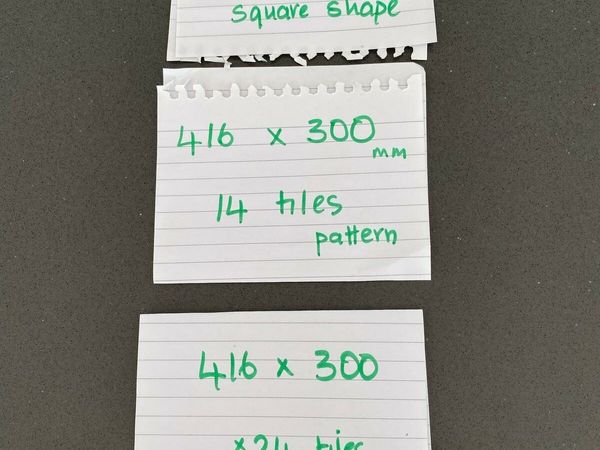 square shape
416 x 300 mm
14 tiles
pattern
416 x 300
x24 tiles